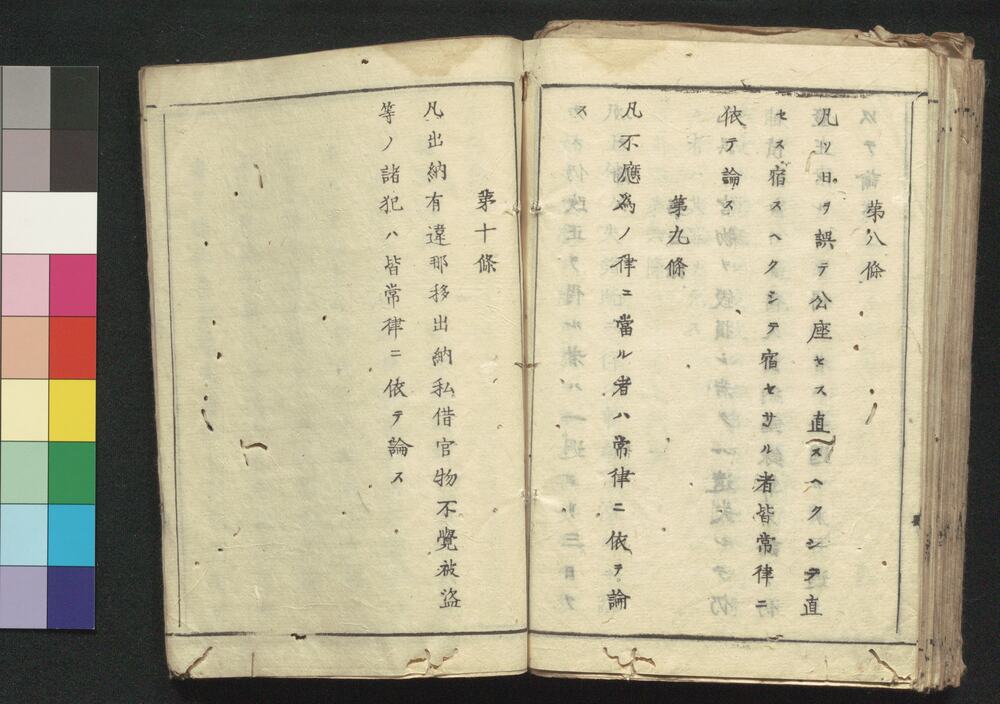 第八條
凡ソ日ヲ誤テ公座セス直スヘクシテ直
セス宿スヘクシテ宿セサル者皆常律ニ
依テ論ス
第九條
凡不應為ノ律ニ當ル者ハ常律ニ依テ論
ス
第十條
凡出納有違那移出納私借官物不覺被盜
等ノ諸犯ハ皆常律ニ依テ論ス